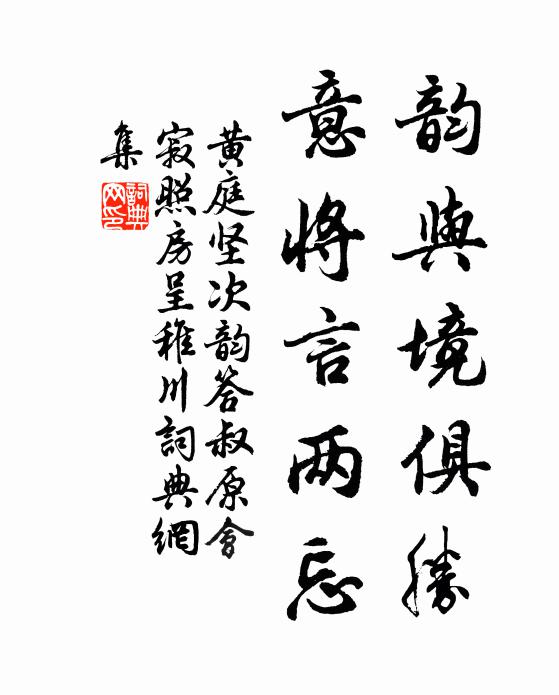 韵與境俱勝
意將言两忘
黄庭坚次韵答叔原會
寂照房呈稚川詞典網
集
詞典网印